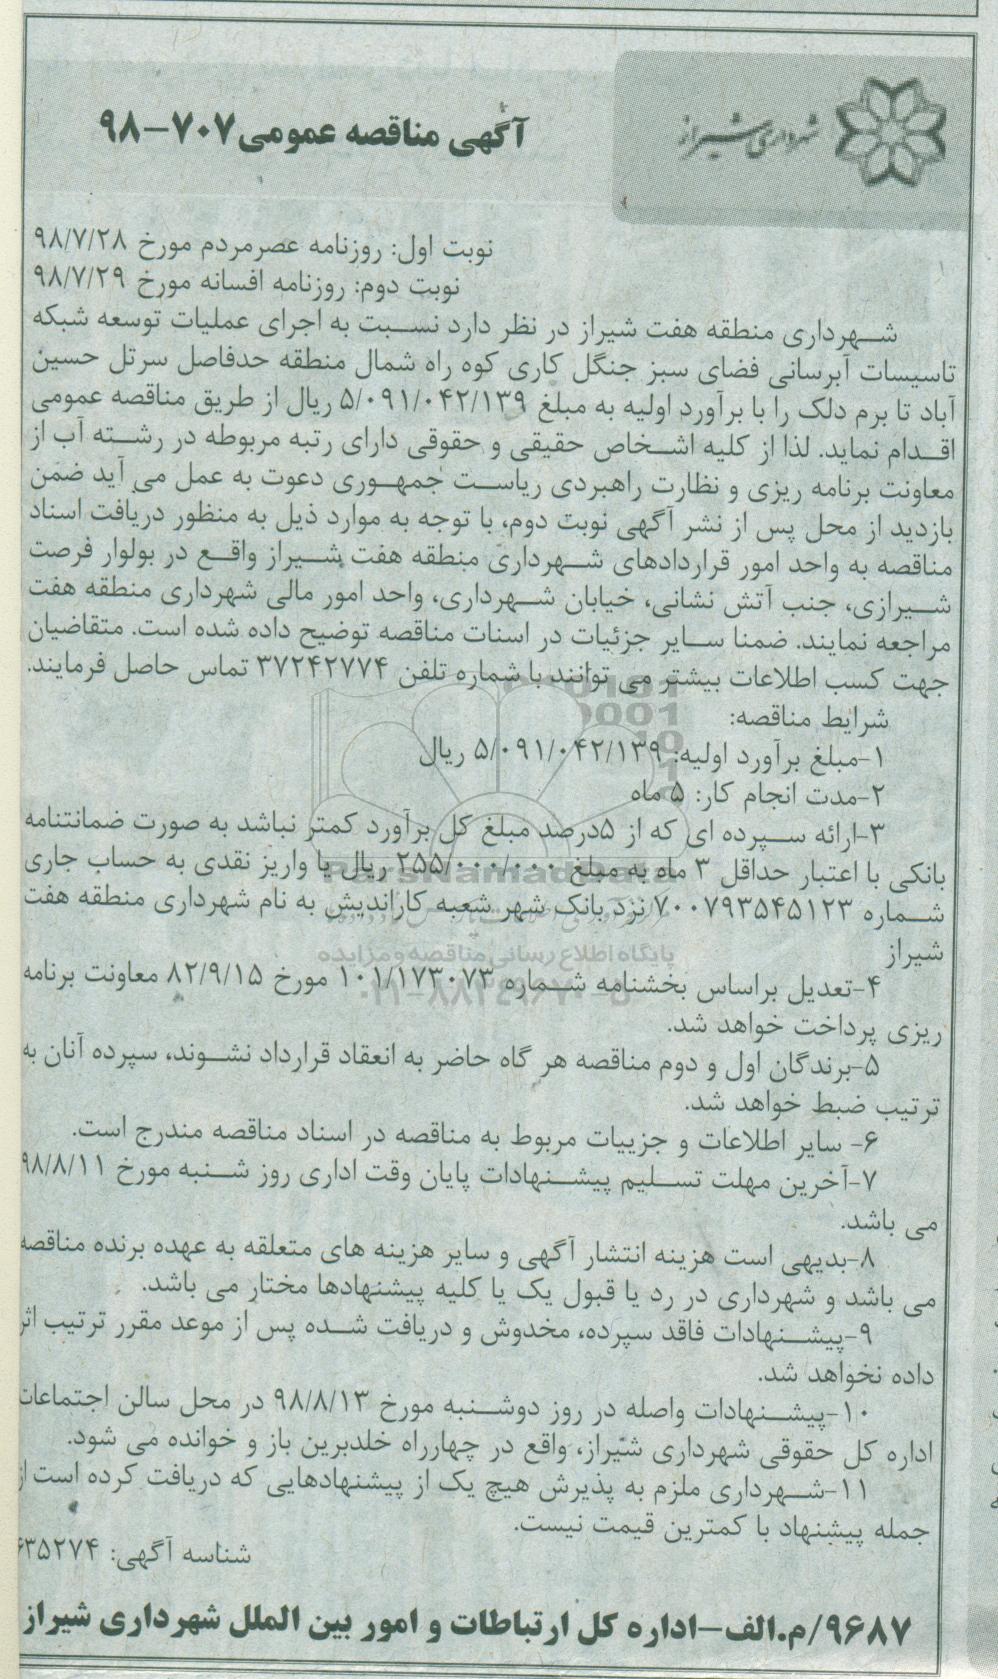 شهرداری شیراز
آگهی مناقصه عمومی ۷۰۷-۹۸
نوبت اول: روزنامه عصرمردم مورخ ۹۸/۷/۲۸
نوبت دوم: روزنامه افسانه مورخ ۹۸/۷/۲۹
شهرداری منطقه هفت شیراز در نظر دارد نسبت به اجرای عملیات توسعه شبکه
تاسیسات آبرسانی فضای سبز جنگل کاری کوه راه شمال منطقه حدفاصل سرتل حسین
آباد تا برم دلک را با برآورد اولیه به مبلغ ۵/۰۹۱/۰۴۲/۱۳۹ ریال از طریق مناقصه عمومی
اقدام نماید. لذا از کلیه اشخاص حقیقی و حقوقی دارای رتبه مربوطه در رشته آب از
معاونت برنامه ریزی و نظارت راهبردی ریاست جمهوری دعوت به عمل می آید ضمن
بازدید از محل پس از نشر آگهی نوبت دوم، با توجه به موارد ذیل به منظور دریافت اسناد
مناقصه به واحد امور قراردادهای شهرداری منطقه هفت شیراز واقع در بولوار فرصت
شیرازی، جنب آتش نشانی، خیابان شهرداری، واحد امور مالی شهرداری منطقه هفت
مراجعه نمایند. ضمنا سایر جزئیات در اسنات مناقصه توضیح داده شده است. متقاضیان
جهت کسب اطلاعات بیشتر می توانند با شماره تلفن ۳۷۲۴۲۷۷۴ تماس حاصل فرمایند.
شرایط مناقصه:
۱-مبلغ برآورد اولیه: ۵/۰۹۱/۰۴۲/۱۳۹ ریال
۲-مدت انجام کار: ۵ ماه
۳-ارائه سپرده ای که از ۵درصد مبلغ کل برآورد کمتر نباشد به صورت ضمانتنامه
بانکی با اعتبار حداقل ۳ ماه به مبلغ ۲۵۵/۰۰۰/۰۰۰ ریال یا واریز نقدی به حساب جاری
شماره ۷۰۰۷۹۳۵۴۵۱۲۳ نزد بانک شهر شعبه کاراندیش به نام شهرداری منطقه هفت
شیراز
ParsNamadData
پایگاه اطلاع رسانی مناقصه و مزایده
۰۲۱-۸۸۳۴۹۶۷۰-۵
۴-تعدیل براساس بخشنامه شماره ۱۰۱/۱۷۳۰۷۳ مورخ ۸۲/۹/۱۵ معاونت برنامه
ریزی پرداخت خواهد شد.
۵-برندگان اول و دوم مناقصه هر گاه حاضر به انعقاد قرارداد نشوند، سپرده آنان به
ترتیب ضبط خواهد شد.
۶- سایر اطلاعات و جزییات مربوط به مناقصه در اسناد مناقصه مندرج است.
۷-آخرین مهلت تسلیم پیشنهادات پایان وقت اداری روز شنبه مورخ ۹۸/۸/۱۱
می باشد.
۸-بدیهی است هزینه انتشار آگهی و سایر هزینه های متعلقه به عهده برنده مناقصه
می باشد و شهرداری در رد یا قبول یک یا کلیه پیشنهادها مختار می باشد.
۹-پیشنهادات فاقد سپرده، مخدوش و دریافت شده پس از موعد مقرر ترتیب اثر
داده نخواهد شد.
۱۰-پیشنهادات واصله در روز دوشنبه مورخ ۹۸/۸/۱۳ در محل سالن اجتماعات
اداره کل حقوقی شهرداری شیراز، واقع در چهارراه خلدبرین باز و خوانده می شود.
۱۱-شهرداری ملزم به پذیرش هیچ یک از پیشنهادهایی که دریافت کرده است از
جمله پیشنهاد با کمترین قیمت نیست.
شناسه آگهی: ۶۳۵۲۷۴
۹۶۸۷/م.الف-اداره کل ارتباطات و امور بین الملل شهرداری شیراز